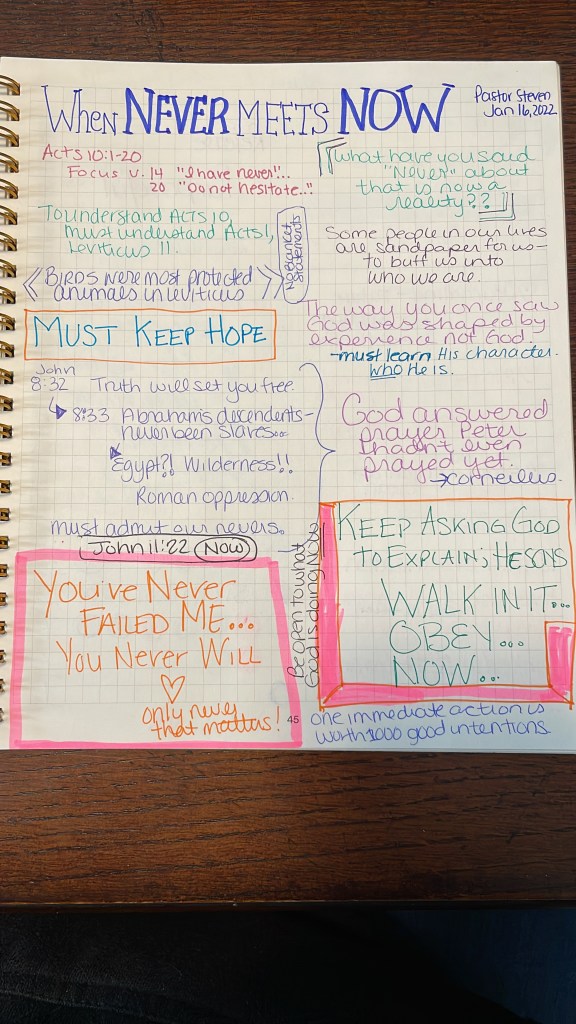 When NEVER MEETS NOW
Pastor Steven
Jan 16, 2022
Acts 10:1-20
Focus v. 14 "I have never"...
20 "Do not hesitate.."
To understand ACTS 10,
must understand Acts 1,
Leviticus 11.
No Blanket
Statements
BIRDS were most protected
animals in Leviticus
MUST KEEP HOPE
John
8:32 Truth will set you free.
8:33 Abraham's descendents-
never been slaves...
Egypt?! Wilderness!!
Roman oppression.
must admit our nevers.
John 11:22 Now
You've Never
FAILED ME...
You Never WILL
only never
that matters!
What have you said
"Never" about
that is now a
reality??
Some people in our lives
are sandpaper for us-
to buff us into
who we are.
The way you once saw
God was shaped by
experience not God.
-must learn His character.
Who He is.
God answered
prayer Peter
hadn't even
prayed yet.
→Cornelius.
Be open to what
God is doing Now
KEEP ASKING GOD
TO EXPLAIN; HE SAYS
WALK IN IT...
OBEY...
NOW...
45
one immediate action is
worth 1000 good intentions